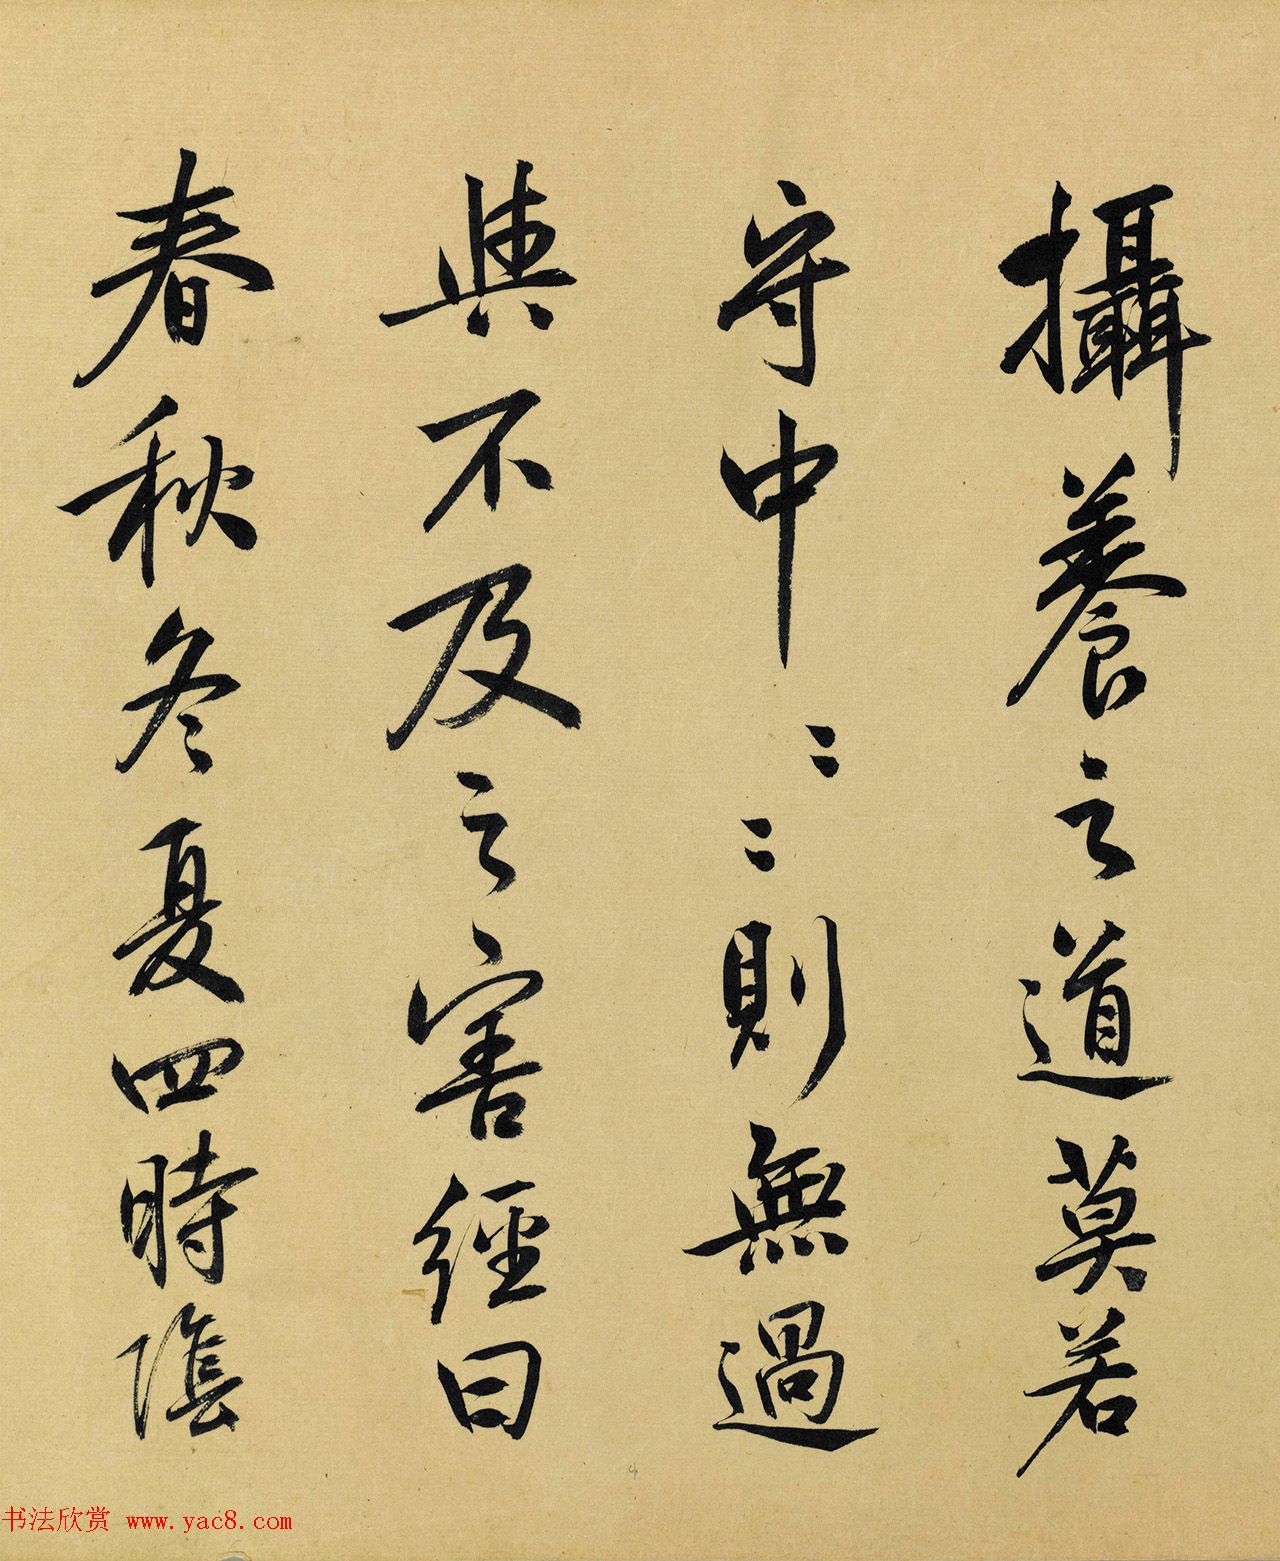 攝養之道莫若
守中〻〻則無過
與不及之害經曰
春秋冬夏四時陰
书法欣赏 www.yac8.com